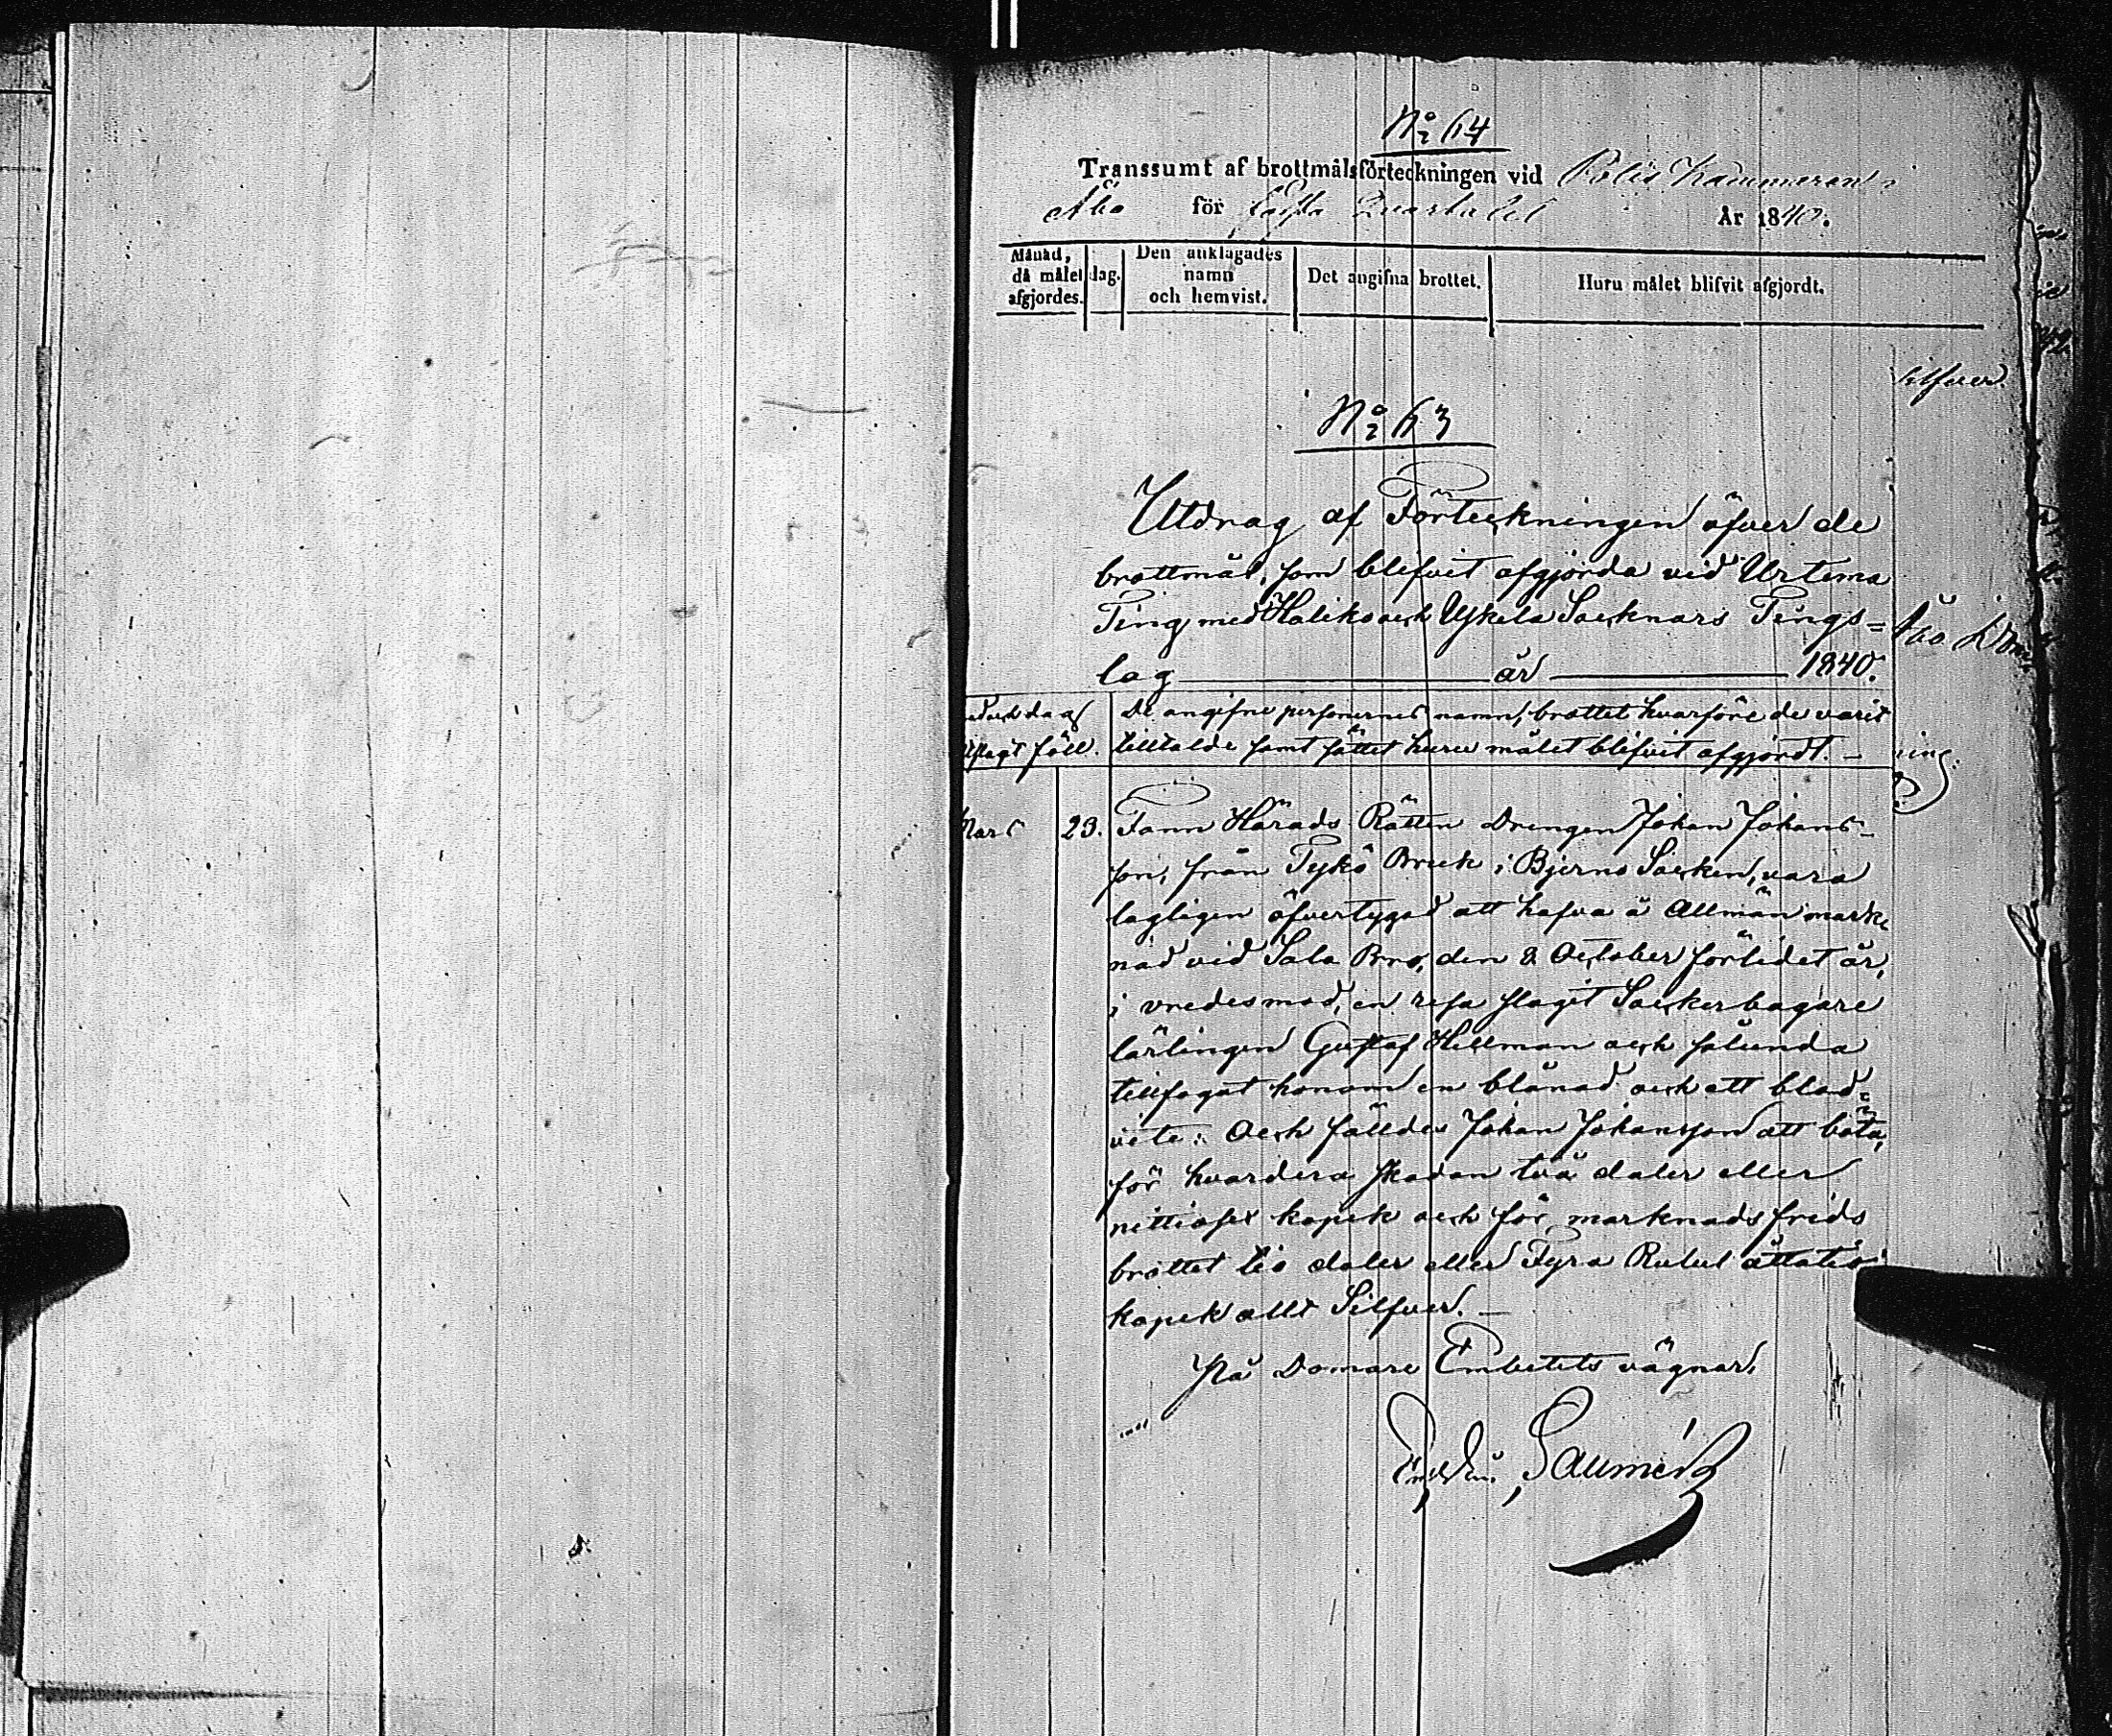 No 64
Transsumt af brottmålsförteckningen vid Polis Kammaren i
Åbo för Första Quartalet År 1840.
Månad, då målet afgjordes.
dag.
Den anklagades namn och hemvist.
Det angifna brottet.
Huru målet blifvit afgjordt.
silfver.
No 63
Utdrag af Förteckningen öfver de
brottmål, som blifvit afgjorda vid Urtima
Ting med Haliko och Uskela Socknars Tings=
lag år 1840.
och dag
föll.
De angifne personernes namn, brottet hvarföre de varit
tilltalde samt sättet huru målet blifvit afgjordt. –
ning.
Mars 23. Fann Härads Rätten Drengen Johan Johans-
son, från Tykö Bruk i Bjerno Socken, vara
lagligen öfvertygad att hafva å Allmän mark-
nad vid Salo Bro, den 2 October förlidet år,
i vredesmod, en resa slagit Sockerbagare
lärlingen Gustaf Hellman och sålunda
tillfogat honom en blånad och ett blod=
vite: Och fälldes Johan Johansson att böta,
för hvardera skadan två daler eller
nittiosex kopek och för marknads frids
brottet tio daler eller Fyra Rubel åttatio
kopek allt Silfver. –
På Domare Embetets vägnar,